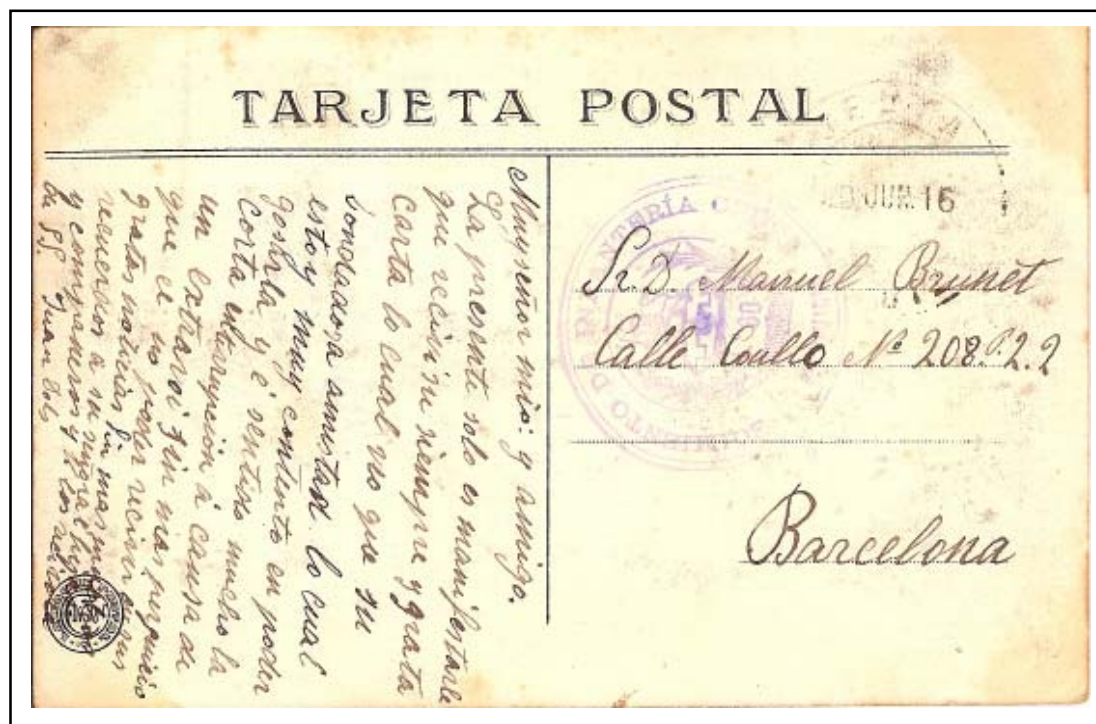 TARJETA POSTAL
JUN 16
INFANTERÍA
Sr. D. Manuel Brunet
Calle Coello Nº 208. P. 2. 2
Barcelona
Muy señor mio: y amigo.
La presente solo es manifestarle
que recivi su siempre y grata
carta lo cual vio que su
bondadosa amistad lo cual
estoy muy contento en poder
gosarla y é sentido mucho la
corta enterrupción á causa de
un extravi sin mas perjuicio
que el no poder recivir sus
gratas noticias Sin mas
recuerdos a su
y compañeros y los
Juan